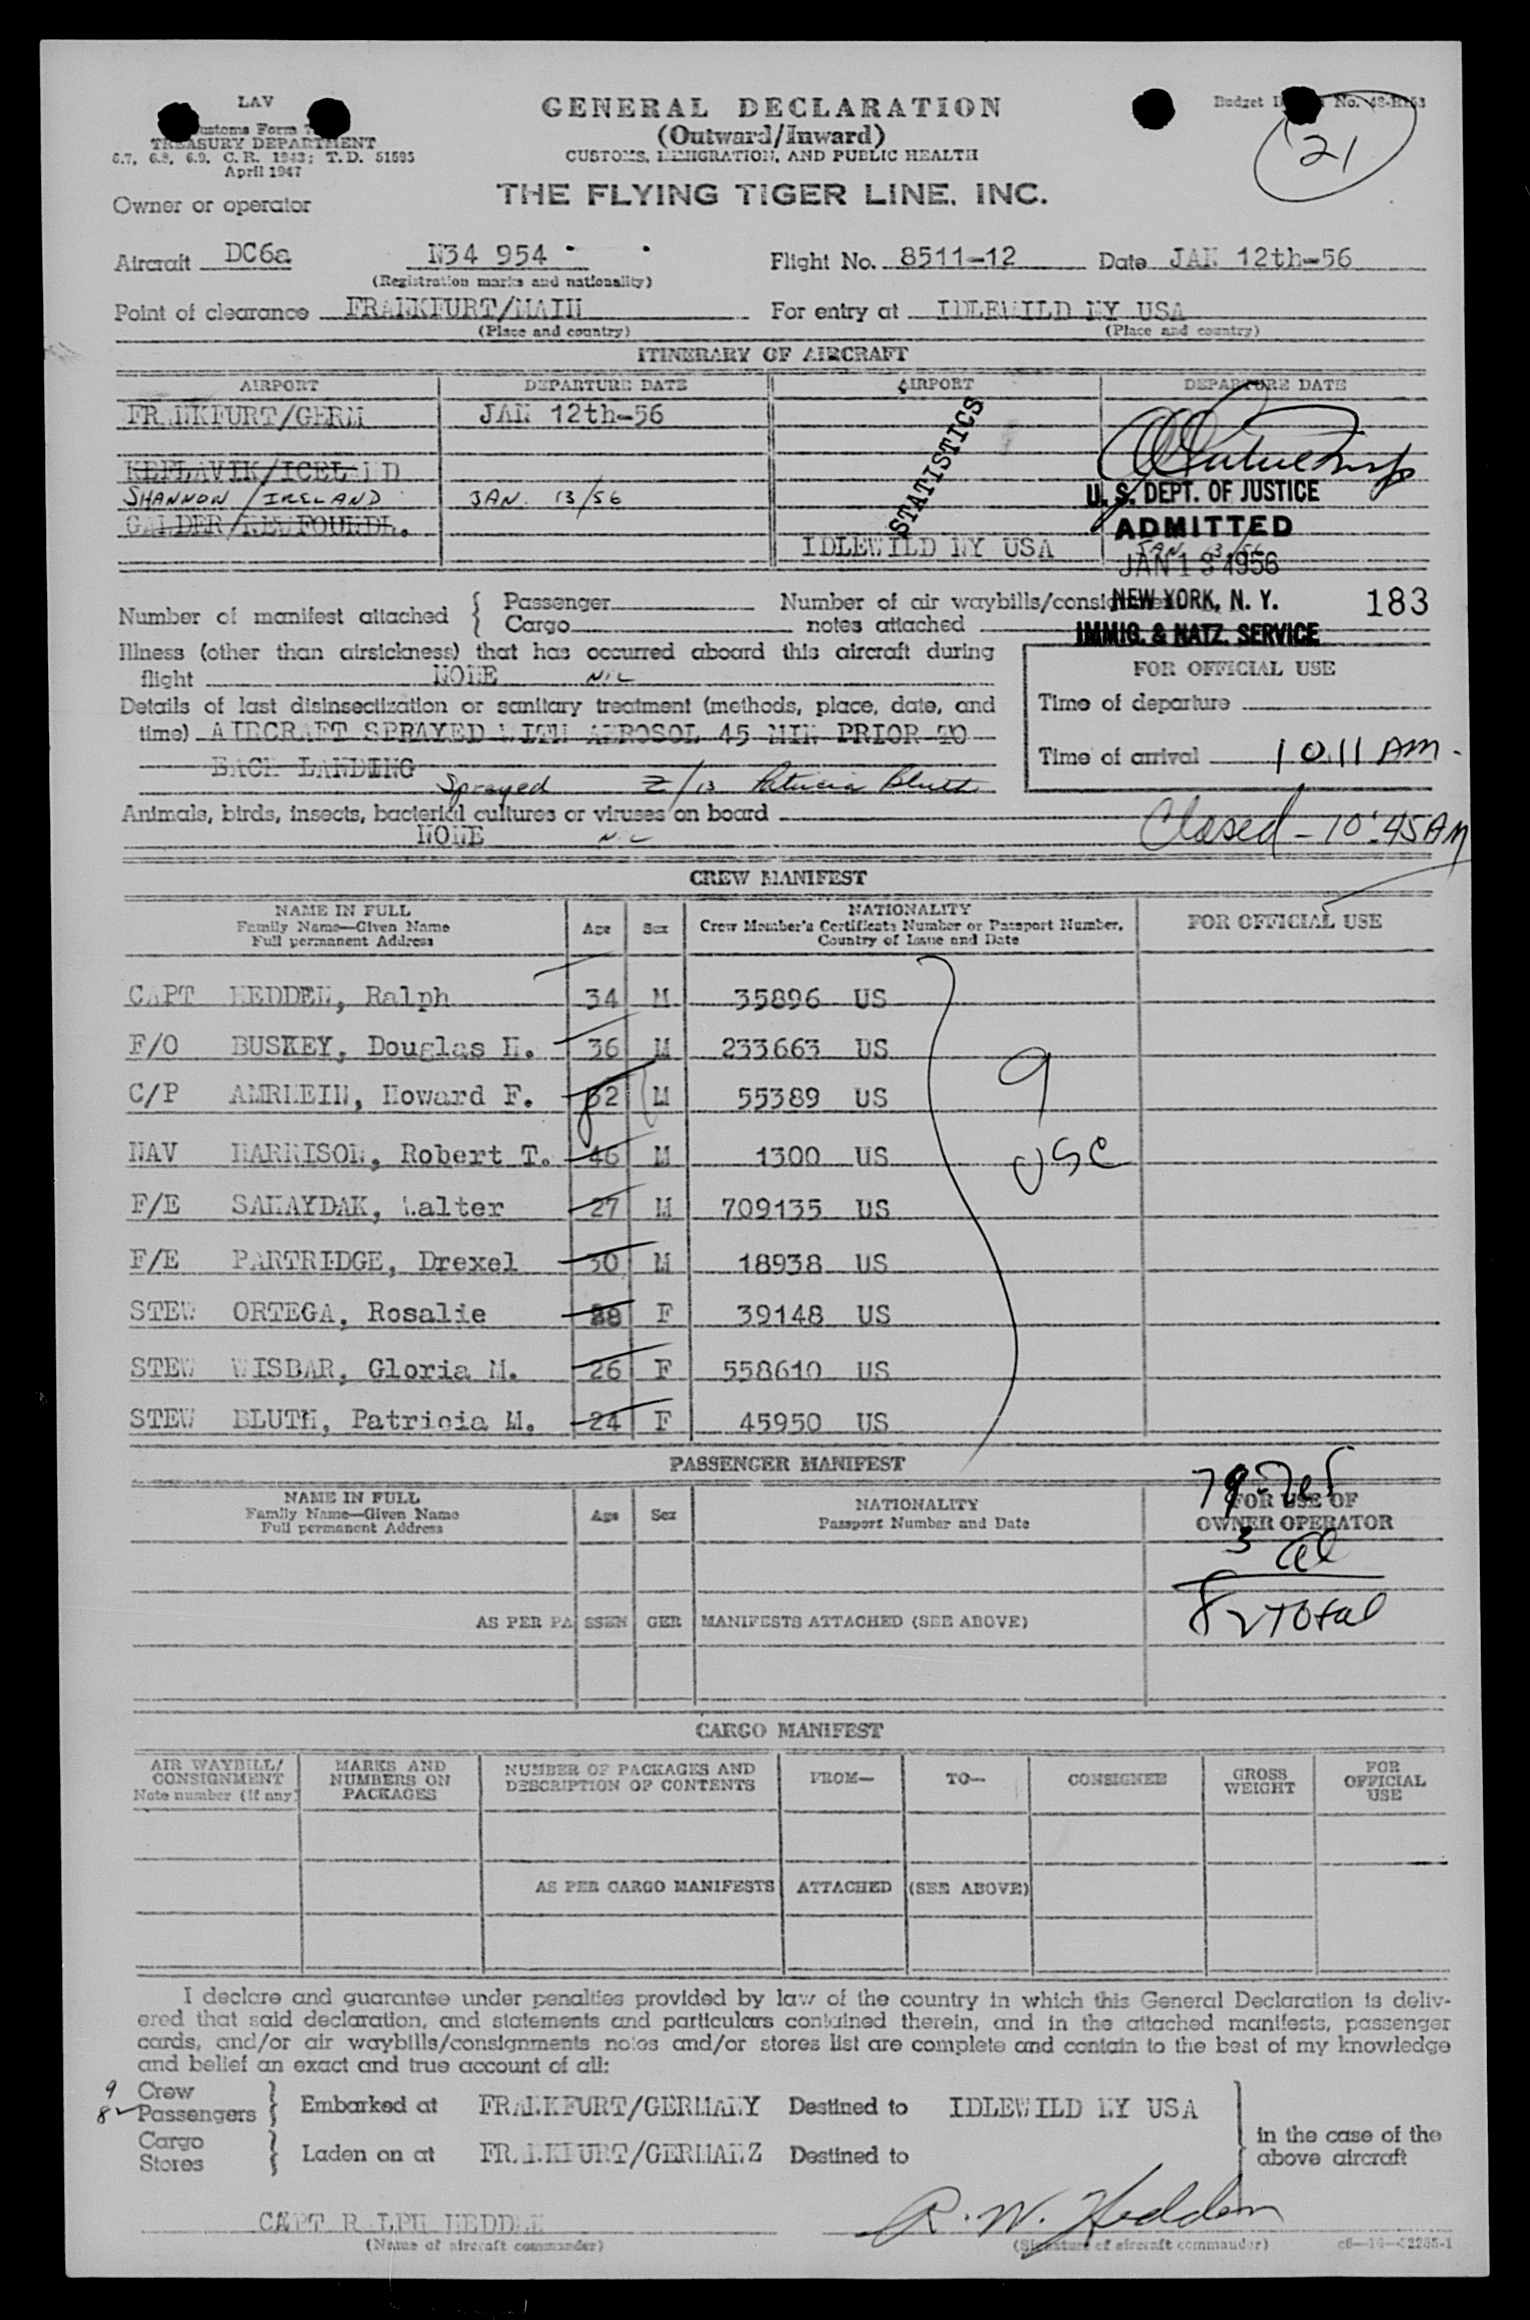 LAV
GENERAL DECLARATION
(Outward/Inward)
CUSTOMS, IMMIGRATION, AND PUBLIC HEALTH
Customs Form
TREASURY DEPARTMENT
6.7, 6.8, 6.9, C.R. 1943; T.D. 51595
April 1947
Budget No. 48-R153
21
THE FLYING TIGER LINE, INC.
Owner or operator
Aircraft DC6a N34 954 Flight No. 8511-12 Date JAN 12th-56
(Registration marks and nationality)
Point of clearance FRANKFURT/MAIN For entry at IDLEWILD NY USA
(Place and country) (Place and country)
ITINERARY OF AIRCRAFT
AIRPORT DEPARTURE DATE AIRPORT DEPARTURE DATE
FRANKFURT/GERM JAN 12th-56
STATISTICS
KEFLAVIK/ICELAND
SHANNON/IRELAND JAN. 13/56
U. S. DEPT. OF JUSTICE
GANDER/NEWFOUNDL.
ADMITTED
IDLEWILD NY USA JAN 13/56
JAN 13 1956
NEW YORK, N. Y.
IMMIG. & NATZ. SERVICE
183
Number of manifest attached { Passenger
Cargo
Number of air waybills/consignment
notes attached
Illness (other than airsickness) that has occurred aboard this aircraft during
flight NONE NIL
Details of last disinsectization or sanitary treatment (methods, place, date, and
time) AIRCRAFT SPRAYED WITH AEROSOL 45 MIN PRIOR TO
EACH LANDING
Sprayed Z/13 Patricia Bluth
Animals, birds, insects, bacterial cultures or viruses on board
NONE NIL
FOR OFFICIAL USE
Time of departure
Time of arrival 10 11 AM.
Closed - 10:45AM
CREW MANIFEST
NAME IN FULL
Family Name—Given Name
Full permanent Address
Age Sex
NATIONALITY
Crew Member's Certificate Number or Passport Number,
Country of Issue and Date
FOR OFFICIAL USE
CAPT HEDDEN, Ralph 34 M 35896 US
F/O BUSKEY, Douglas H. 36 M 233663 US
C/P AMRHEIN, Howard F. 32 M 55389 US
NAV HARRISON, Robert T. 46 M 1300 US
F/E SAHAYDAK, Walter 27 M 709135 US
F/E PARTRIDGE, Drexel 30 M 18938 US
STEW ORTEGA, Rosalie 28 F 39148 US
STEW WISBAR, Gloria M. 26 F 558610 US
STEW BLUTH, Patricia M. 24 F 45950 US
9
USC
PASSENGER MANIFEST
NAME IN FULL
Family Name—Given Name
Full permanent Address
Age Sex
NATIONALITY
Passport Number and Date
FOR USE OF
OWNER OPERATOR
79
3
82 Total
AS PER PASSENGER MANIFESTS ATTACHED (SEE ABOVE)
CARGO MANIFEST
AIR WAYBILL/
CONSIGNMENT
Note number (if any)
MARKS AND
NUMBERS ON
PACKAGES
NUMBER OF PACKAGES AND
DESCRIPTION OF CONTENTS
FROM—
TO—
CONSIGNEE
GROSS
WEIGHT
FOR
OFFICIAL
USE
AS PER CARGO MANIFESTS ATTACHED (SEE ABOVE)
I declare and guarantee under penalties provided by law of the country in which this General Declaration is deliv-
ered that said declaration, and statements and particulars contained therein, and in the attached manifests, passenger
cards, and/or air waybills/consignments notes and/or stores list are complete and contain to the best of my knowledge
and belief an exact and true account of all:
9 Crew
82 Passengers } Embarked at FRANKFURT/GERMANY Destined to IDLEWILD NY USA
Cargo
Stores } Laden on at FRANKFURT/GERMANZ Destined to
in the case of the
above aircraft
CAPT RALPH HEDDEN R. W. Hedden
(Name of aircraft commander) (Signature of aircraft commander)